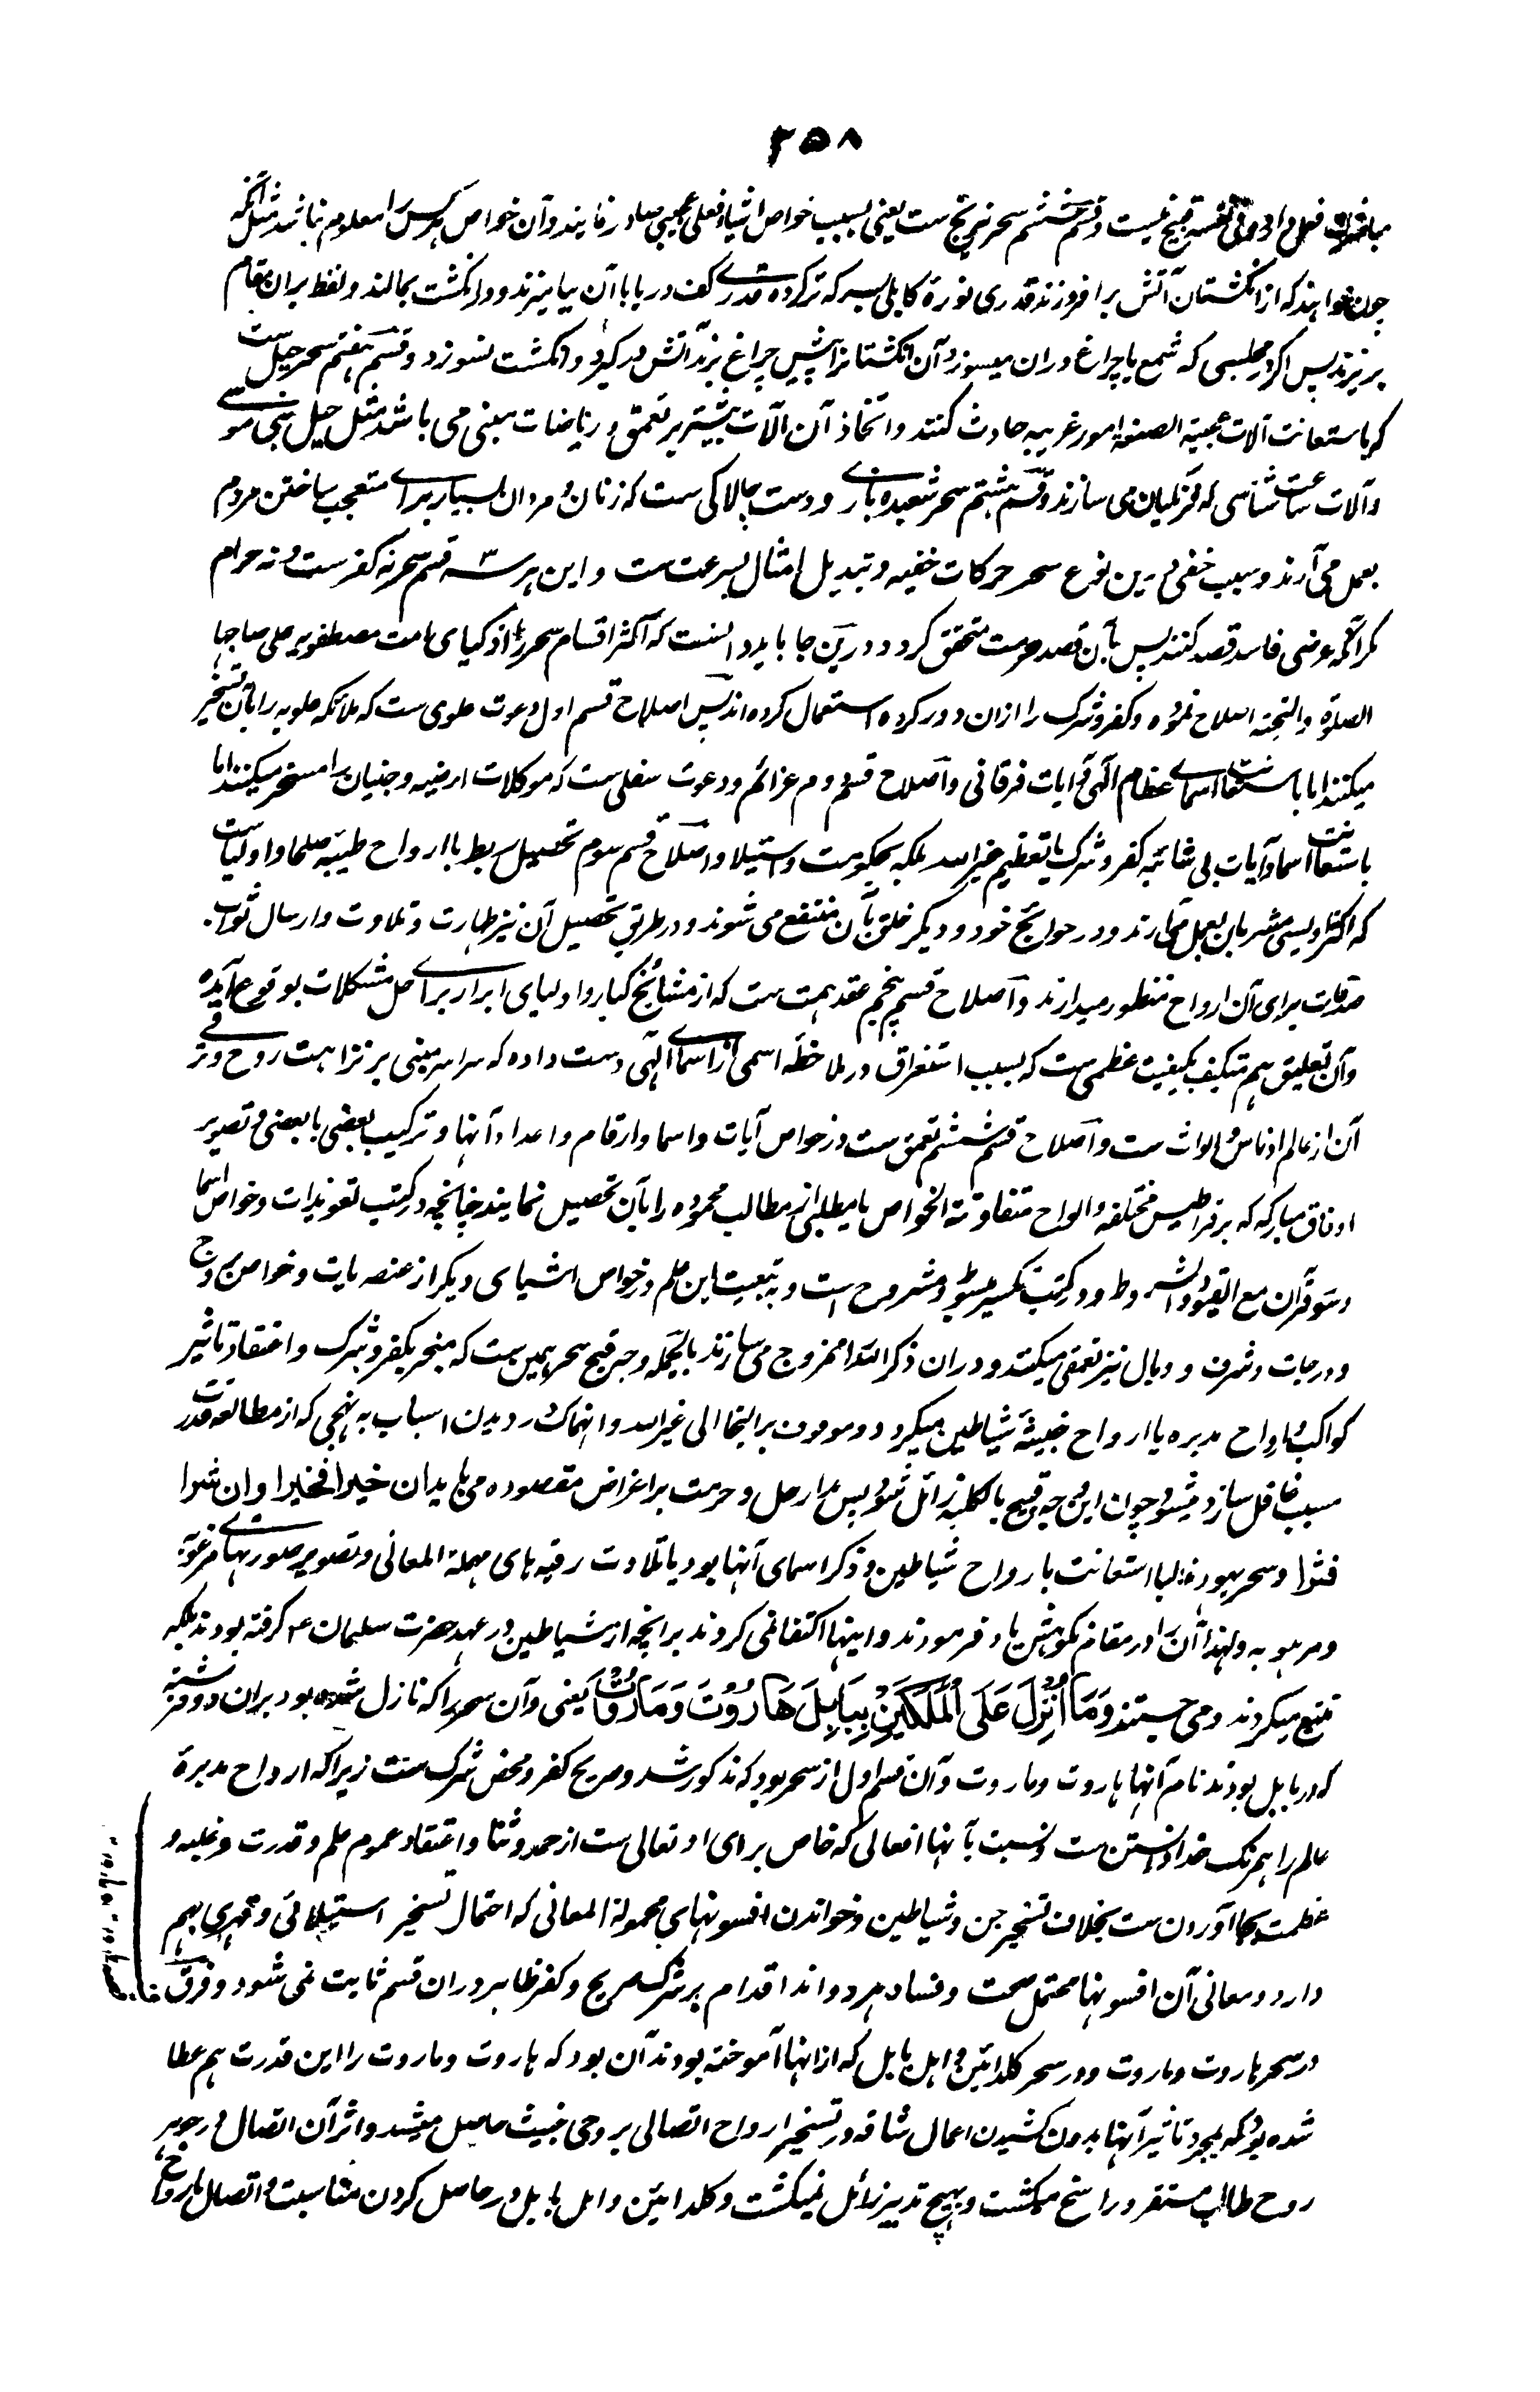 ۳۵۸
فعل و او فی نفسه قبیح نیست و قسم ششم سحر نیرنج ست یعنی بسبب خواص اشیاء فعلی عجیبی صادر نمایند و آن خواص هر کس را معلوم نباشد مثل آنکه
چون خواهند که از انگشتان آتش برافروزند قدری نورۀ کابلی بسرکه تر کرده قدرے کف دریا باآن بیامیزند و در انگشت بمالند و نفط بران مقام
بریزند پس اگر در مجلسی که شمع یا چراغ دران میسوزد آن انگشتانرا پیش چراغ برند آتش درگیرد و انگشت نسوزد و قسم هفتم سحر حیل ست
که باستعانت آلات عجیبة الصنعة امور غریبه حادث کنند و اتخاذ آن آلات بیشتر بر تعمق در ریاضات مبنی می باشد مثل حیل بنی موسے
و آلات ساعت شناسی که فرنگیان می سازند و قسم هشتم سحر شعبده بازے و دست چالاکی ست که زنان و مردان بسیار براے متعجب ساختن مردم
بعمل می آرند و سبب خفی درین نوع سحر حرکات خفیه و تبدیل امثال بسرعت ست و این هر سه قسم سحر نه کفر ست و نه حرام
مگر آنکه غرضی فاسد قصد کنند پس بآن قصد حرمت متحقق گردد و درین جا باید دانست که اکثر اقسام سحر را اذکیای امت مصطفویه علی صاحبها
الصلوة والتحیة اصلاح نموده و کفر و شرک را ازان دور کرده استعمال کرده اند پس اصلاح قسم اول دعوت علوی ست که ملائکه علویه را بآن تسخیر
میکنند اما باستعانت اسماے عظام الهی و آیات فرقانی و اصلاح قسم دوم عزائم و دعوت سفلی ست که موکلات ارضیه و جنیان را مسخر میکنند اما
باستعانت اسما و آیات بی شائبه کفر و شرک یا تعظیم غیر الله بلکه بحکومت و استیلا و اصلاح قسم سوم تحصیل ربط باارواح طیبۀ صلحا و اولیاست
که اکثر اویسی مشربان بعمل می آرند و در حوائج خود و دیگر خلق بآن منتفع می شوند و در طریق تحصیل آن نیز طهارت و تلاوت و ارسال ثواب
صدقات برای آن ارواح منظور میدارند و اصلاح قسم پنجم عقد همت ست که از مشائخ کبار و اولیای ابرار براے حل مشکلات بوقوع آیده
و آن تعلیق هم متکیف بکیفیت عظمی ست که بسبب استغراق در ملاحظۀ اسمی از اسماے الهی دست داده که سراسر مبنی بر نزاهت روح و ترقے
آن از عالم ادناس و الواث ست و اصلاح قسم ششم تعمق ست در خواص آیات و اسما و ارقام و اعداد آنها و ترکیب بعضی با بعضی و تصویر
اوفاق مبارکه که بر قراطیس مختلفه و الواح متفاوتة الخواص تا مطلبی از مطالب محموده را بآن تحصیل نمایند چنانچه در کتب تعویذات و خواص اسما
و سور قرآن مع القیود و الشروط و در کتب تکسیر مبسوط و مشروح است و به تبعیت این علم در خواص اشیای دیگر از عنصریات و خواص بروج
و درجات و شرف و وبال نیز تعمقی میکنند و دران ذکر الله را ممزوج می سازند بالجمله وجه قبح سحر همین ست که منجر بکفر و شرک و اعتقاد تاثیر
کواکب و ارواح مدبره یا ارواح خبیثۀ شیاطین میگردد و موقوف بر التجا الی غیر الله و انهماک در دیدن اسباب به نهجی که از مطالعه قدرت
مسبب غافل سازد میشود چون این وجه قبح بالکلیه زائل شود پس مدار حل و حرمت بر اغراض مقصوده می ماند ان خیرا فخیرا و ان شرا
فشرا و سحر یهود غالبا استعانت بارواح شیاطین و ذکر اسمای آنها بود یا تلاوت رقیه های مهملة المعانی و تصویر صورتهاے مرغوبه
و مرهوبه و لهذا آن را در مقام نکوهش یاد فرمودند و اینها اکتفا نمی کردند بر آنچه از شیاطین در عهد حضرت سلیمان ع گرفته بودند بلکه
تتبع میکردند و می جستند وَمَا اُنْزِلَ عَلَى الْمَلَكَيْنِ بِبَابِلَ هَارُوْتَ وَمَارُوْتَ یعنی و آن سحر را که نازل شده بود بران دو فرشته
که در بابل بودند نام آنها هاروت و ماروت و آن قسم اول از سحر بود که مذکور شد و صریح کفر و محض شرک ست زیرا که ارواح مدبرۀ
عالم را همرنگ خدا دانستن ست و نسبت بآنها افعالی که خاص برای او تعالی ست از حمد و ثنا و اعتقاد عموم علم و قدرت و غلبه و
عظمت بجا آوردن ست بخلاف تسخیر جن و شیاطین و خواندن افسونهای مجهولة المعانی که احتمال تسخیر استیلائی و قهری هم
دارد و معانی آن افسونها محتمل صحت و فساد هر دو اند اقدام بر شرک صریح و کفر ظاهر دران قسم ثابت نمی شود و فرق
در سحر هاروت و ماروت و در سحر کلدانین و اهل بابل که از انها آموخته بودند آن بود که هاروت و ماروت را این قدرت هم عطا
شده بود که بمجرد تاثیر آنها بدون کشیدن اعمال شاقه در تسخیر ارواح اتصالی بروحی خبیث حاصل میشد و اثر آن اتصال در جوهر
روح طالب مستقر و راسخ میگشت و بهیچ تدبیر زائل نمیگشت و کلدانین و اهل بابل در حاصل کردن مناسبت و اتصال بارواح